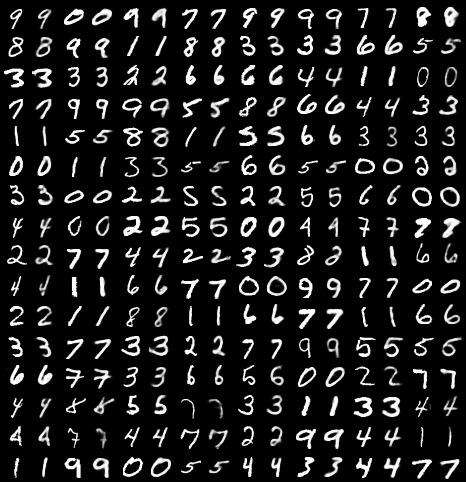 9 9 0 0 9 9 7 7 9 9 9 9 7 7 8 8
8 8 9 9 1 1 8 8 3 3 3 3 6 6 5 5
3 3 3 3 2 2 6 6 6 6 4 4 1 1 0 0
7 7 9 9 9 9 5 5 8 8 6 6 4 4 3 3
1 1 5 5 8 8 1 1 5 5 6 6 3 3 3 3
0 0 1 1 3 3 5 5 6 6 5 5 0 0 2 2
3 3 0 0 2 2 5 5 2 2 5 5 6 6 0 0
4 4 0 0 2 2 5 5 0 0 4 4 7 7 7 7
2 2 7 7 4 4 2 2 3 3 8 2 1 1 6 6
4 4 1 1 6 6 7 7 0 0 9 9 7 7 0 0
2 2 1 1 8 8 1 1 6 6 7 7 1 1 6 6
3 3 7 7 3 3 2 2 7 7 9 9 5 5 5 5
6 6 7 7 3 3 6 6 5 6 0 0 2 2 7 7
4 4 8 8 5 5 7 7 3 3 1 1 3 3 4 4
4 4 7 7 4 4 7 7 2 2 9 9 4 4 1 1
1 1 9 9 0 0 5 5 4 4 3 3 4 4 7 7